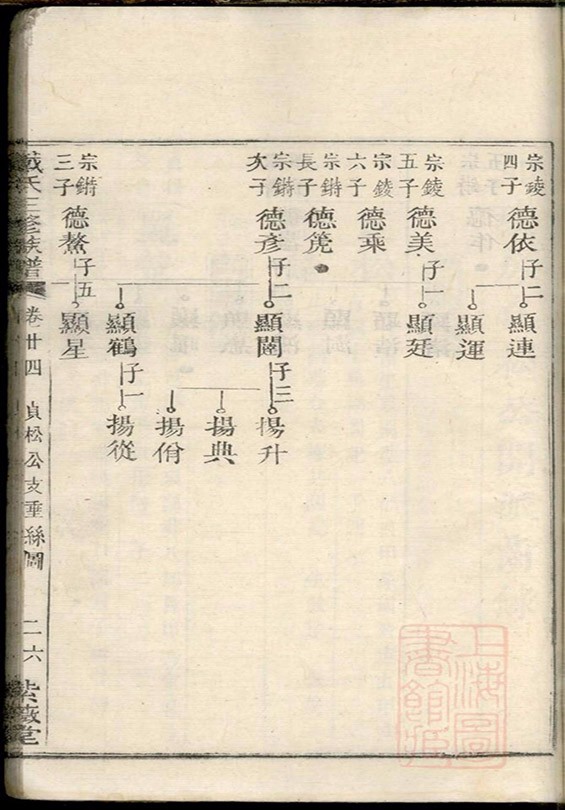 宗錂四子 德依 子二 顯連
顯運
宗錂五子 德美 子一 顯廷
宗錂六子 德乘
宗鏘長子 德筦
宗鏘次子 德彥 子二 顯闊 子三 揚升
揚典
揚佾
顯鶴 子一 揚從
宗鏘三子 德鰲 子五 顯星
戴氏三修族譜 卷廿四 貞松公支垂絲圖 二六 紫薇堂
上海圖書館藏